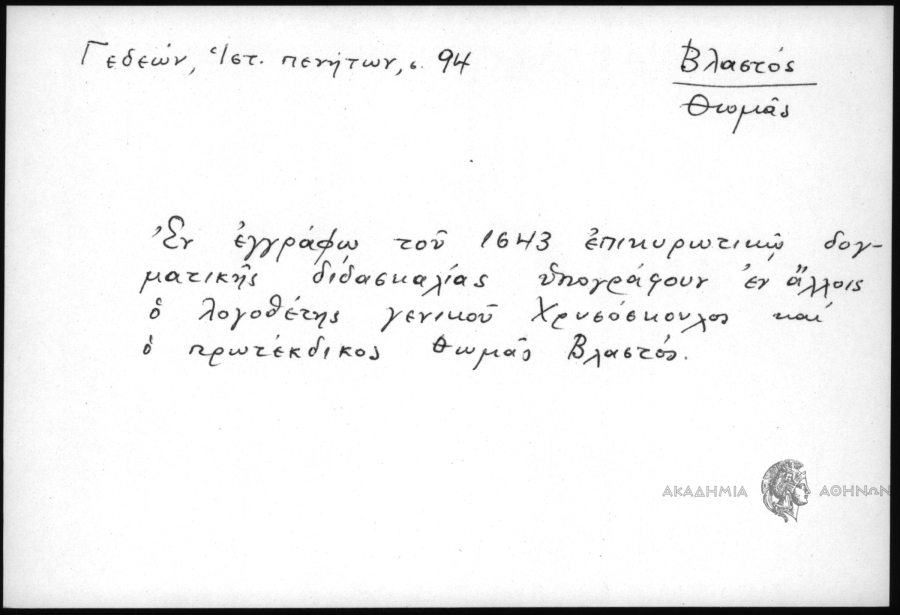 Γεδεών, Ἱστ. πενήτων, σ. 94
Βλαστός
Θωμᾶς
Ἐν ἐγγράφῳ τοῦ 1643 ἐπικυρωτικῷ δογ-
ματικῆς διδασκαλίας ὑπογράφουν ἐν ἄλλοις
ὁ λογοθέτης γενικοῦ Χρυσόσκουλος καί
ὁ πρωτέκδικος Θωμᾶς Βλαστός.
ΑΚΑΔΗΜΙΑ ΑΘΗΝΩΝ